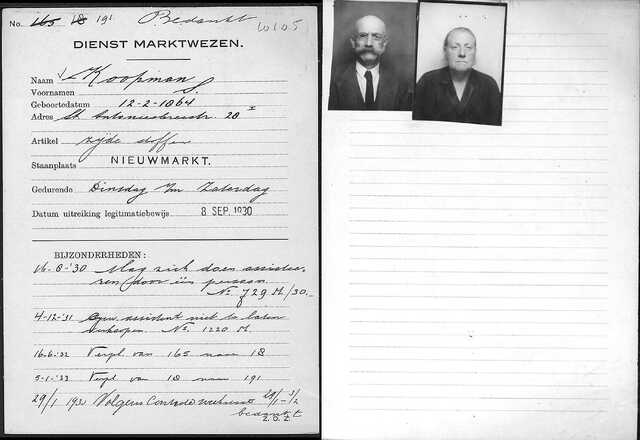 No. 165 18 191 Bedankt
W105
DIENST MARKTWEZEN.
Naam Koopman
Voornamen S.
Geboortedatum 12-2-1864
Adres St. Antoniesbreestr. 20 I
Artikel zijde stoffen
Staanplaats NIEUWMARKT.
Gedurende Dinsdag t/m Zaterdag
Datum uitreiking legitimatiebewijs 8 SEP. 1930
BIJZONDERHEDEN:
16-8-'30 Mag zich doen assistee-
ren door één persoon.
No. 729 M./30.-
4-12-'31 assistent niet te laten
verkoopen. No. 1220 M.
16-6-'32 Verpl. van 165 naar 18
5-1-'33 Verpl. van 18 naar 191
29/1 193 Volgens
bedankt
Z.O.Z.